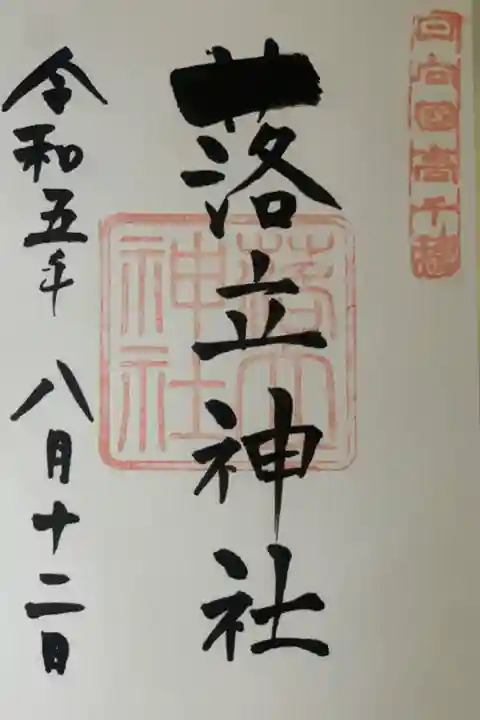 日向國高千穂
落立神社
落立神社
令和五年 八月十二日